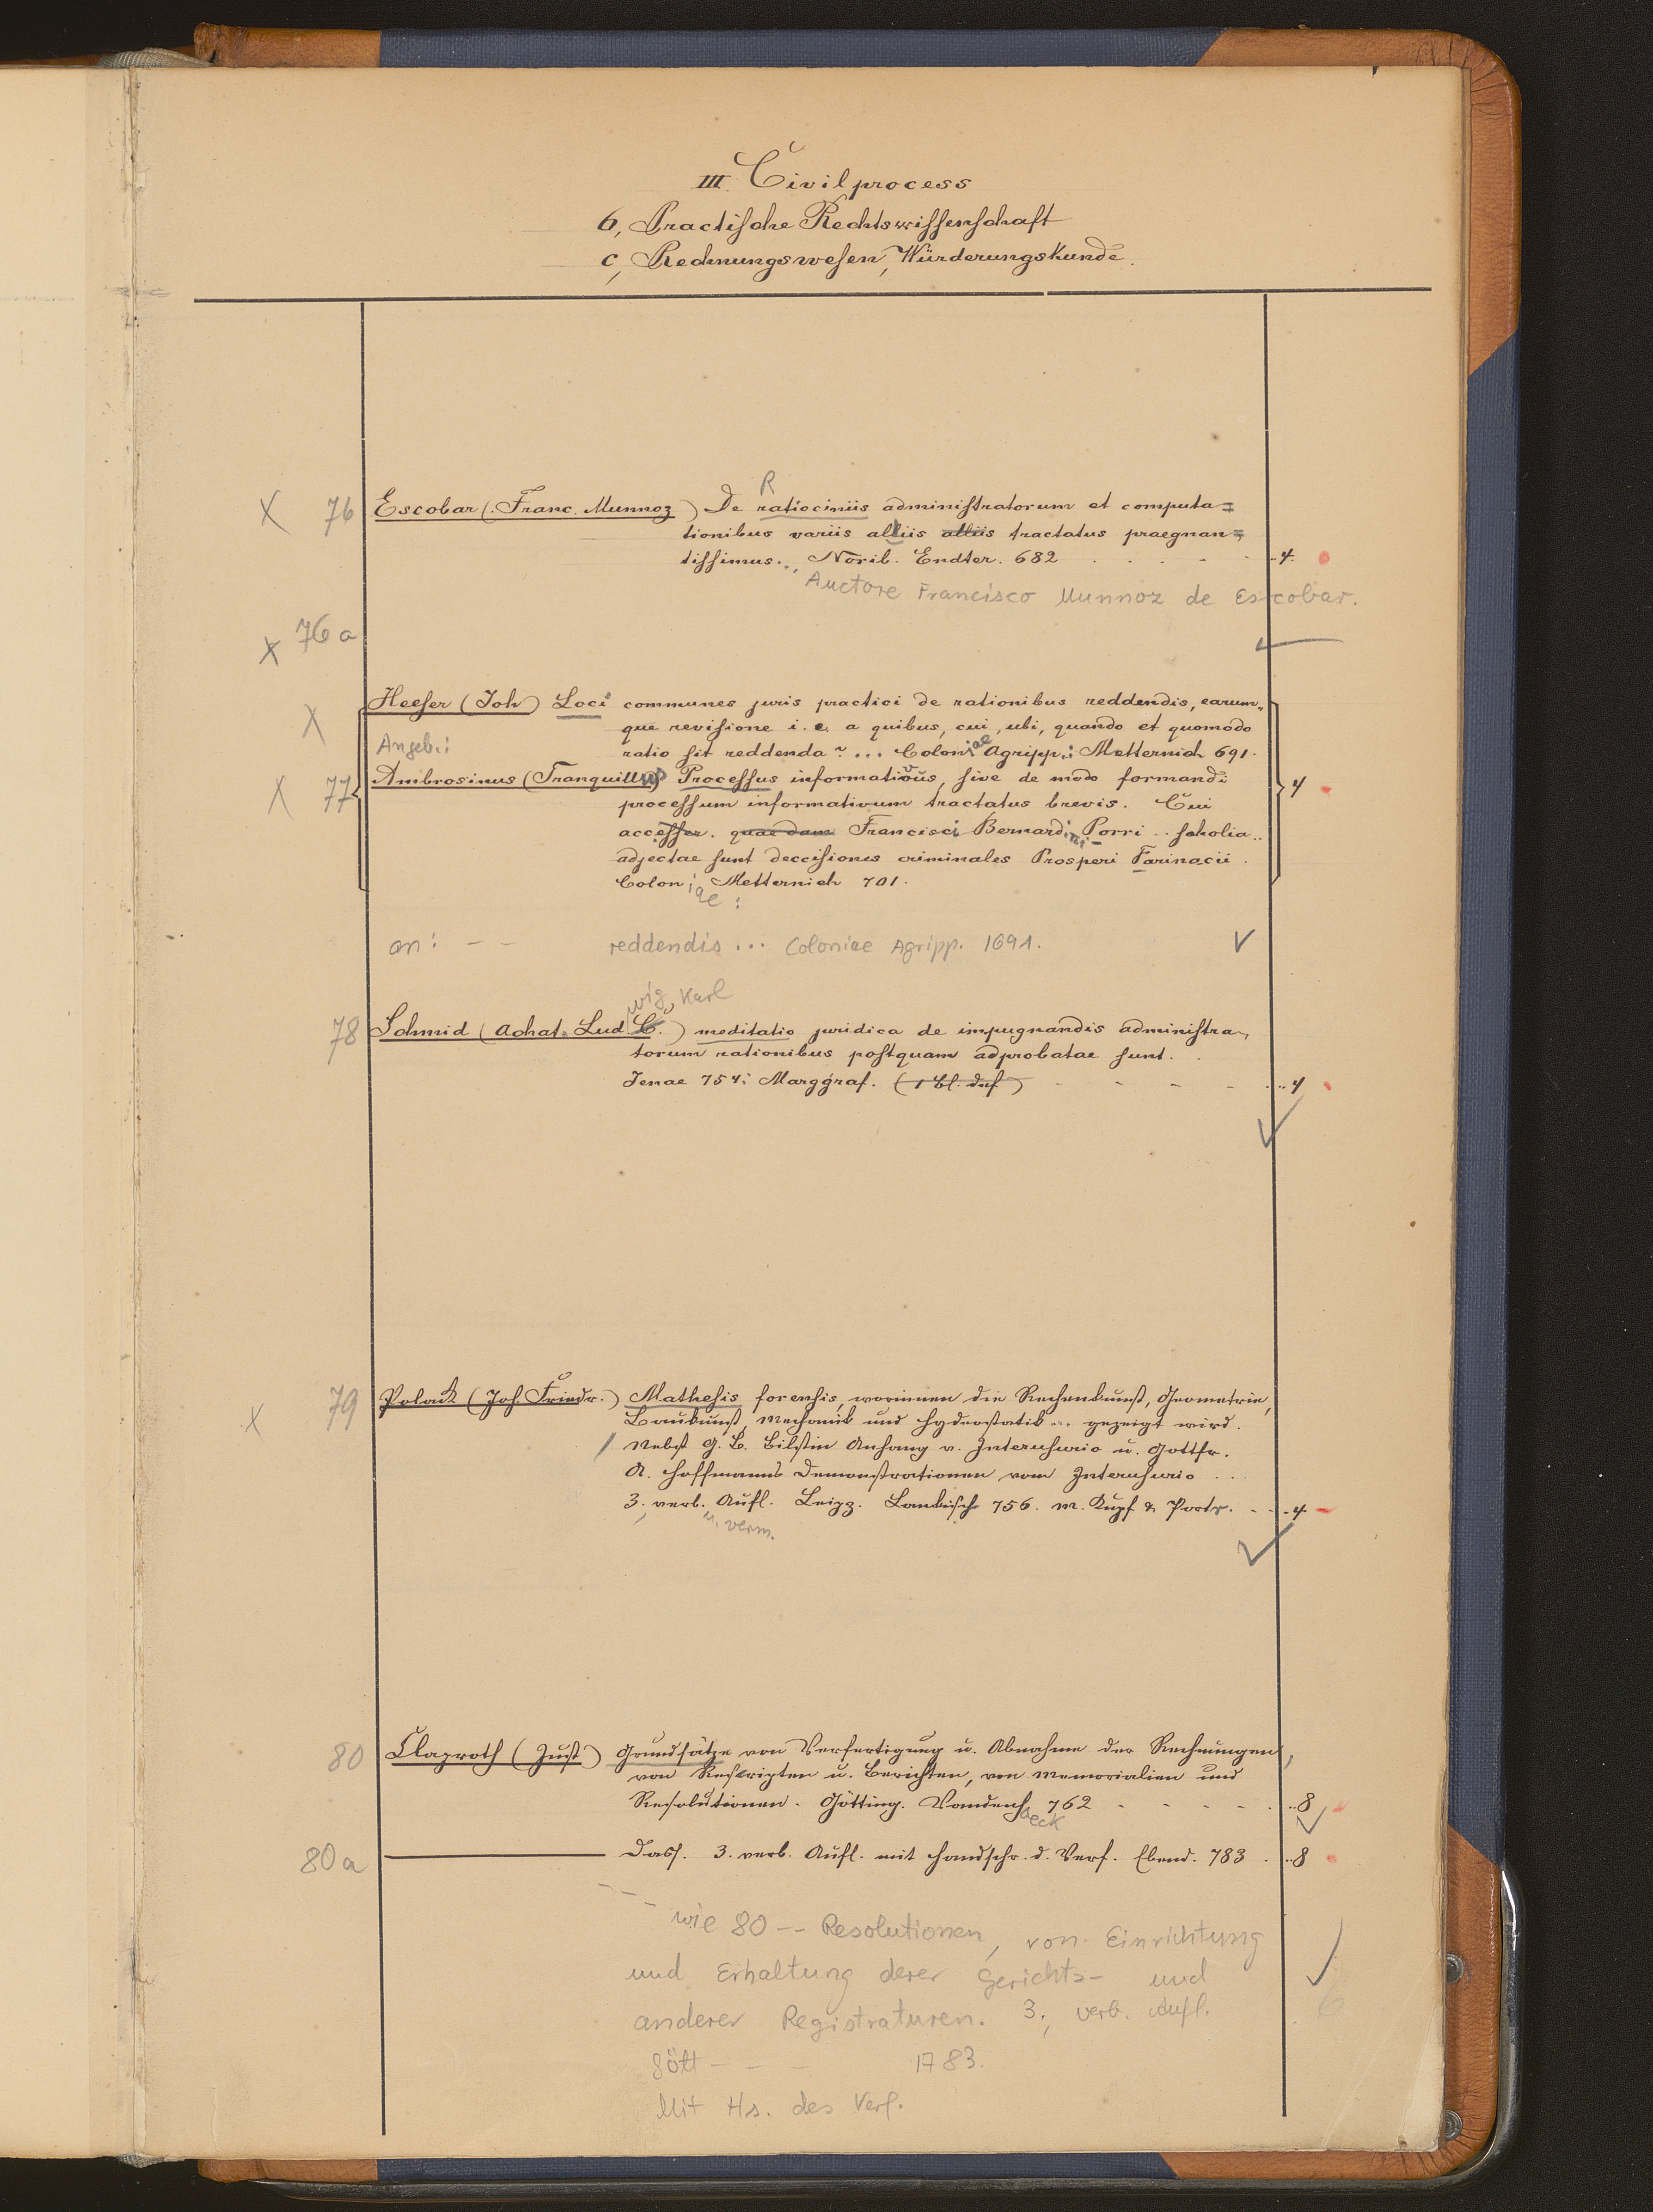 III. Civilprocess
b, Practische Rechtswissenschaft
c, Rechnungswesen, Würderungskunde.
R
X 76 Escobar (Franc. Munnoz) De ratiociniis administratorum et computa=
tionibus variis aliis alliis tractatus praegnan=
tissimus... Norib. Endter. 682 ..4.
Auctore Francisco Munnoz de Escobar.
X 76a
X Heeser (Joh) Loci communes juris practici de rationibus reddendis, earum=
que revisione i. e. a quibus, cui, ubi, quando et quomodo
Angeb.: ratio sit reddenda? ... Coloniae Agripp.: Metternich 691.
X 77 Ambrosinus (Tranquillus) Processus informativus, sive de modo formandi 4
processum informativum tractatus brevis. Cui
accesser. quaedam Francisci Bernardini Porri .. scholia..
adjectae sunt deccisiones criminales Prosperi Farinacii.
Coloniae: Metternich 701.
an: - - reddendis ... Coloniae Agripp. 1691.
wig Karl
78 Schmid (Achat. Lud. C.) meditatio juridica de impugnandis administra=
torum rationibus postquam adprobatae sunt.
Jenae 754: Marggraf. (1 Bl. def) ..4
X 79 Polack (Joh. Friedr.) Mathesis forensis, worinnen die Rechenkunst, Geometrie,
Baukunst, Mechanik und Hydrostatik ... gezeigt wird.
Nebst G. B. Bilstin Anhang v. Interusurio u. Gottfr.
A. Hoffmanns Demonstrationen vom Interusurio ...
3., verb. Aufl. Leipz. Lankisch 756. m. Kupf & Portr. ..4
u. verm.
80 Claproth (Just) Grundsätze von Verfertigung u. Abnahme der Rechnungen,
von Rescripten u. Berichten, von Memorialien und
Resolutionen. Götting. Vandenhoeck 762 ..8
80a Dass. 3. verb. Aufl. mit Handschr. d. Verf. Ebend. 783 ..8
wie 80 -- Resolutionen, von Einrichtung
und Erhaltung derer Gerichts- und
anderer Registraturen. 3., verb. Aufl. 6
Gött - - - 1783.
Mit Hs. des Verf.